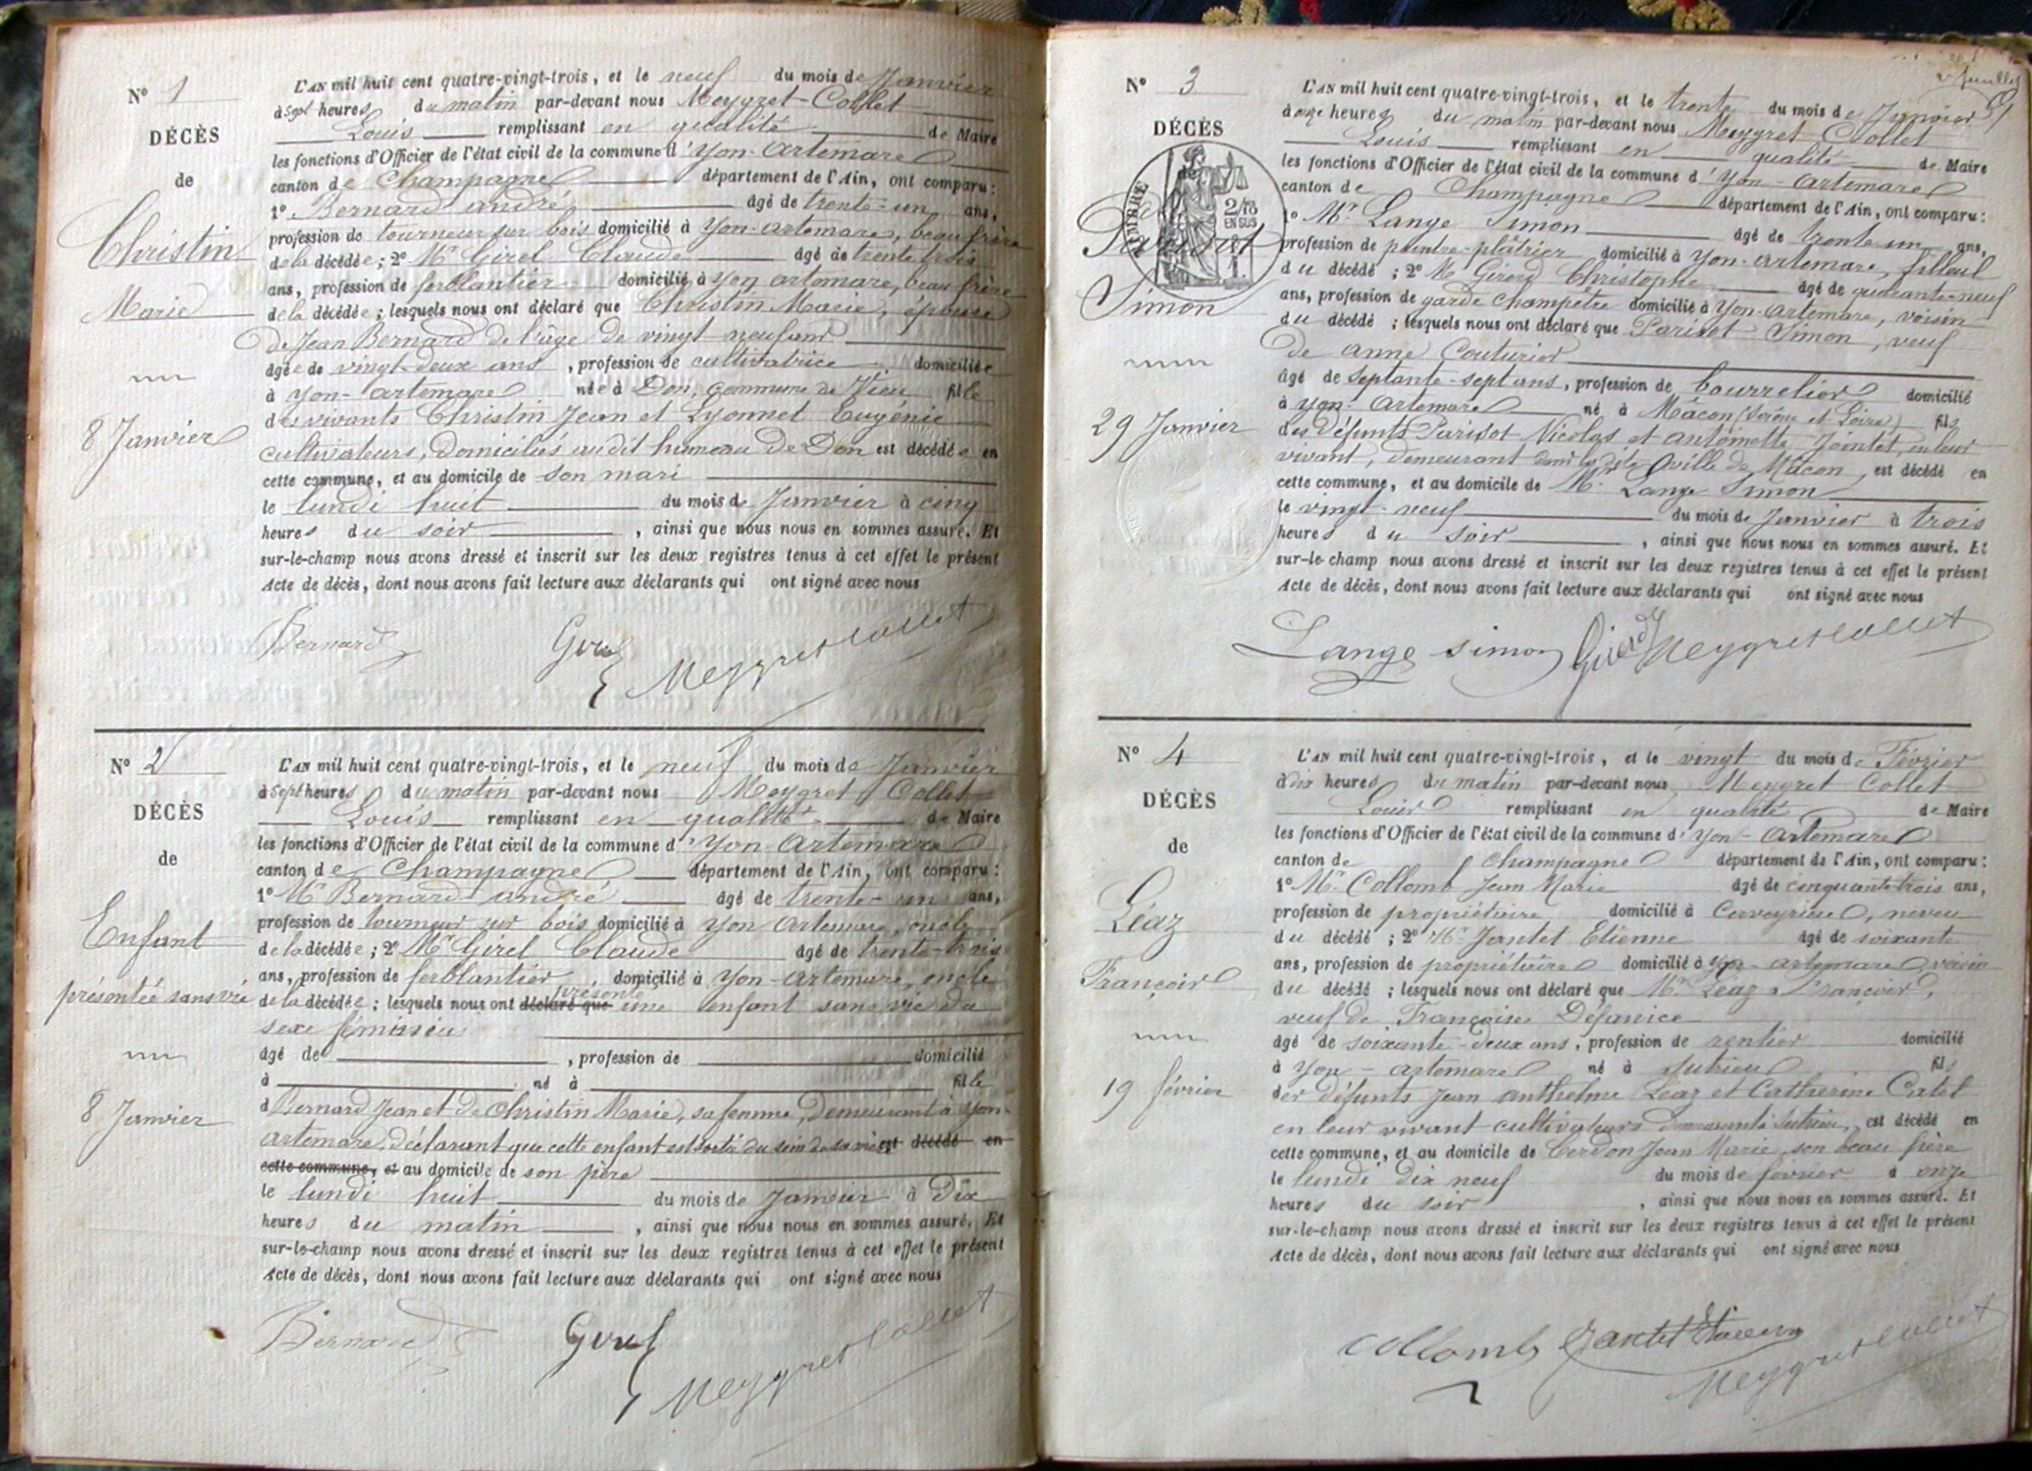 N° 1
DÉCÈS
de
Christin
Marie
8 Janvier
L'AN mil huit cent quatre-vingt-trois, et le neuf du mois de Janvier
à Sept heures du matin par-devant nous Meygret-Collet
Louis remplissant en qualité de Maire
les fonctions d'Officier de l'état civil de la commune d'Yon-Artemare
canton de Champagne département de l'Ain, ont comparu :
1° Bernard andré âgé de trente-un ans,
profession de tourneur sur bois domicilié à Yon-artemare, beau frère
de la décédée ; 2° Mr Girel Claude âgé de trente trois
ans, profession de ferblantier domicilié à Yon artemare, beau frère
de la décédée ; lesquels nous ont déclaré que Christin Marie, épouse
de Jean Bernard de l'âge de vingt neuf ans
âgée de vingt-deux ans, profession de cultivatrice domiciliée
à Yon-artemare née à Don, commune de Vieu fille
des vivants Christin Jean et Lyonnet Eugénie
cultivateurs, domiciliés audit hameau de Don est décédée en
cette commune, et au domicile de son mari
le lundi huit du mois de Janvier à cinq
heures du soir, ainsi que nous nous en sommes assuré. Et
sur-le-champ nous avons dressé et inscrit sur les deux registres tenus à cet effet le présent
Acte de décès, dont nous avons fait lecture aux déclarants qui ont signé avec nous
Bernard Girel Meygret Collet
N° 2
DÉCÈS
de
Enfant
présentée sans vie
8 Janvier
L'AN mil huit cent quatre-vingt-trois, et le neuf du mois de Janvier
à Sept heures du matin par-devant nous Meygret Collet
Louis remplissant en qualité de Maire
les fonctions d'Officier de l'état civil de la commune d'Yon-Artemare
canton de Champagne département de l'Ain, ont comparu :
1° Mr Bernard andré âgé de trente-un ans,
profession de tourneur sur bois domicilié à Yon artemare, oncle
de la décédée ; 2° Mr Girel Claude âgé de trente-trois
ans, profession de ferblantier, domicilié à Yon-artemare, oncle
de la décédée ; lesquels nous ont déclaré que présenté une enfant sans vie du
sexe féminin
âgé de , profession de domicilié
à né à fille
d Bernard Jean et de Christin Marie, sa femme, demeurant à Yon-
artemare, déclarant que cette enfant est sortie du sein de sa mère est décédé en
cette commune, et au domicile de son père
le lundi huit du mois de Janvier à Dix
heures du matin, ainsi que nous nous en sommes assuré. Et
sur-le-champ nous avons dressé et inscrit sur les deux registres tenus à cet effet le présent
Acte de décès, dont nous avons fait lecture aux déclarants qui ont signé avec nous
Bernard Girel Meygret Collet
N° 3
DÉCÈS
TIMBRE
2/10
EN SUS
Parisot
Simon
29 Janvier
L'AN mil huit cent quatre-vingt-trois, et le trente du mois de Janvier
à onze heures du matin par-devant nous Meygret Collet
Louis remplissant en qualité de Maire
les fonctions d'Officier de l'état civil de la commune d'Yon-artemare
canton de Champagne département de l'Ain, ont comparu :
1° Mr Lange Simon âgé de trente un ans,
profession de peintre-plâtrier domicilié à Yon-artemare, filleul
du décédé ; 2° Mr Girerd Christophe âgé de quarante-neuf
ans, profession de garde champêtre domicilié à Yon-artemare, voisin
du décédé ; lesquels nous ont déclaré que Parisot Simon, veuf
de anne Couturier
âgé de septante-sept ans, profession de bourrelier domicilié
à Yon-artemare né à Mâcon (Saône et Loire) fils
des défunts Parisot Nicolas et antoinette Jontet, en leur
vivant, demeurant dans la dite ville de Mâcon, est décédé en
cette commune, et au domicile de Mr Lange Simon
le vingt-neuf du mois de Janvier à trois
heures du soir, ainsi que nous nous en sommes assuré. Et
sur-le-champ nous avons dressé et inscrit sur les deux registres tenus à cet effet le présent
Acte de décès, dont nous avons fait lecture aux déclarants qui ont signé avec nous
Lange simon Girerd Meygret Collet
N° 4
DÉCÈS
de
Léaz
François
19 février
L'AN mil huit cent quatre-vingt-trois, et le vingt du mois de Février
à dix heures du matin par-devant nous Meygret Collet
Louis remplissant en qualité de Maire
les fonctions d'Officier de l'état civil de la commune d'Yon-Artemare
canton de Champagne département de l'Ain, ont comparu :
1° Mr Collomb Jean Marie âgé de cinquante trois ans,
profession de propriétaire domicilié à Cerveyrieu, neveu
du décédé ; 2° Mr Jantet Etienne âgé de soixante
ans, profession de propriétaire domicilié à Yon-artemare voisin
du décédé ; lesquels nous ont déclaré que Mr Léaz François,
veuf de Françoise
âgé de soixante-deux ans, profession de rentier domicilié
à Yon-artemare né à Sutrieu fils
des défunts Jean anthelme Léaz et Catherine Catel
en leur vivant cultivateurs demeurant à Sutrieu, est décédé en
cette commune, et au domicile de Cerdon Jean Marie son beau frère
le lundi dix neuf du mois de fevrier à onze
heures du soir, ainsi que nous nous en sommes assuré. Et
sur-le-champ nous avons dressé et inscrit sur les deux registres tenus à cet effet le présent
Acte de décès, dont nous avons fait lecture aux déclarants qui ont signé avec nous
Collomb Jantet Etienne
Meygret Collet